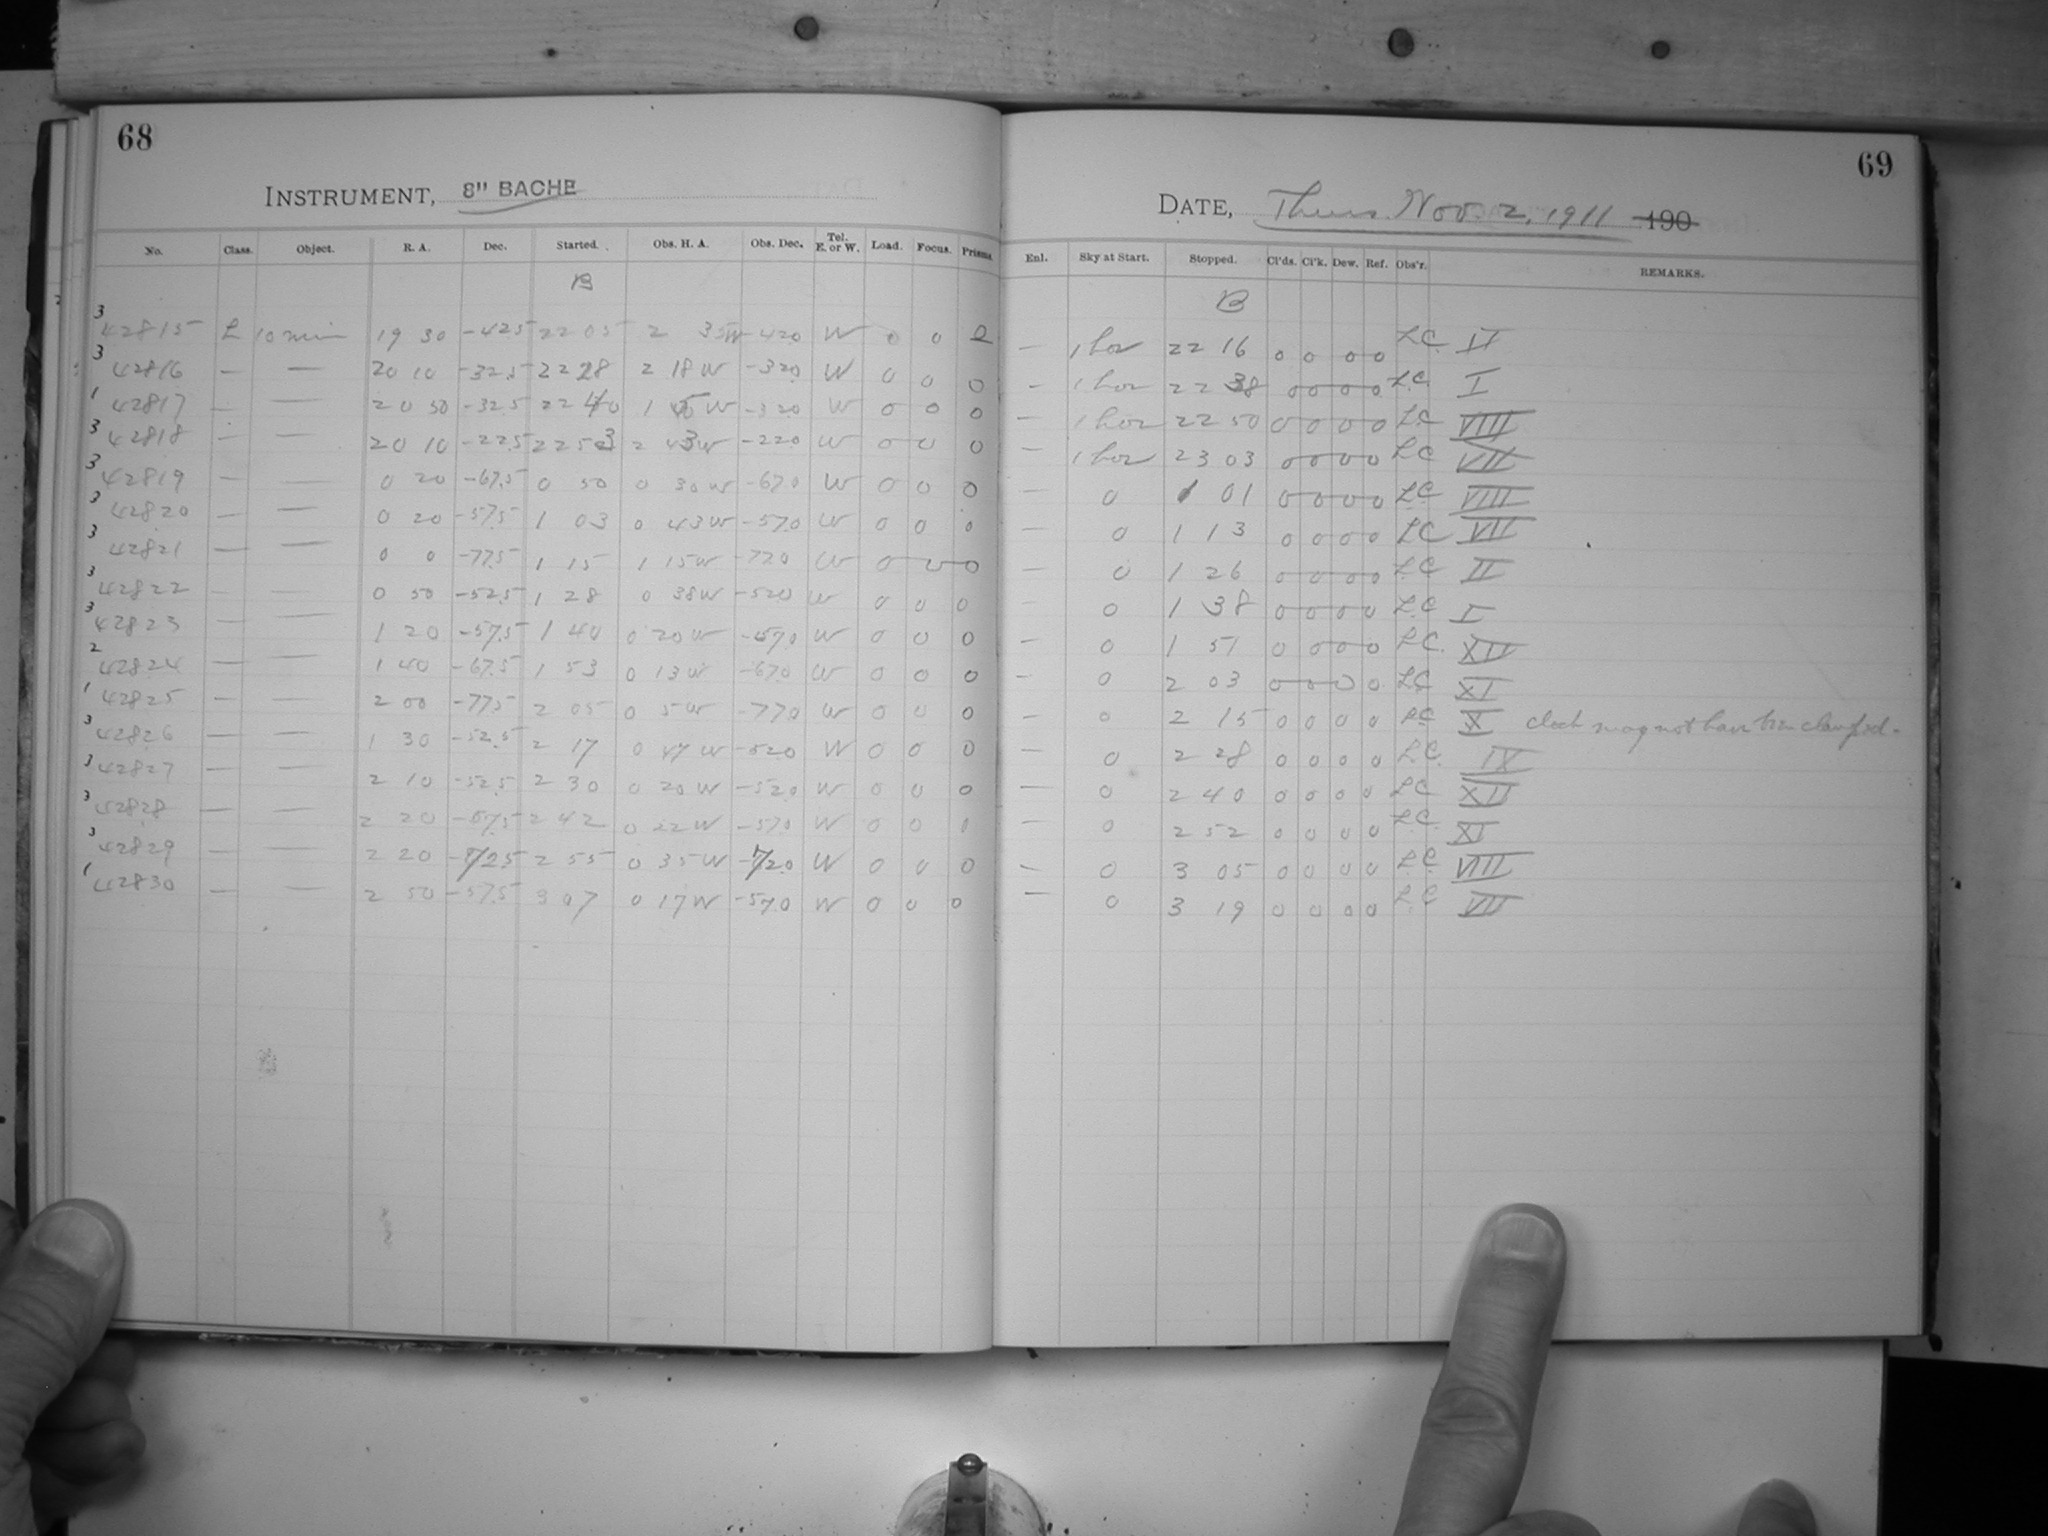 68
INSTRUMENT, 8" BACHE
No. Class. Object. R. A. Dec. Started. Obs. H. A. Obs. Dec. Tel. E. or W. Load. Focus. Prisms.
B
3 42815 L 10 min 19 30 -42.5 22 05 2 35W -420 W 0 0
3 42816 — — 20 10 -32.5 22 28 2 18 W -320 W 0 0 0
1 42817 — — 20 50 -32.5 22 40 1 W -320 W 0 0 0
3 42818 — — 20 10 -22.5 22 53 2 43W -220 W 0 0 0
3 42819 — — 0 20 -67.5 0 50 0 30 W -670 W 0 0 0
3 42820 — — 0 20 -57.5 1 03 0 43 W -570 W 0 0 0
3 42821 — — 0 0 -77.5 1 15 1 15 W -770 W 0 0 0
3 42822 — — 0 50 -52.5 1 28 0 38W -520 W 0 0 0
3 42823 — — 1 20 -57.5 1 40 0 20 W -570 W 0 0 0
2 42824 — — 1 40 -67.5 1 53 0 13 W -670 W 0 0 0
1 42825 — — 2 00 -77.5 2 05 0 5 W -770 W 0 0 0
3 42826 — — 1 30 -52.5 2 17 0 47 W -520 W 0 0 0
3 42827 — — 2 10 -52.5 2 30 0 20 W -520 W 0 0 0
3 42828 — — 2 20 -57.5 2 42 0 22 W -570 W 0 0 0
3 42829 — — 2 20 -725 2 55 0 35 W -720 W 0 0 0
1 42830 — — 2 50 -57.5 3 07 0 17 W -570 W 0 0 0
69
DATE, Thurs. Nov. 2, 1911 190
Enl. Sky at Start. Stopped. Cl'ds. Cl'k. Dew. Ref. Obs'r. REMARKS.
B
— 1 hor 22 16 0 0 0 0 L.C. II
— 1 hor 22 38 0 0 0 0 L.C. I
— 1 hor 22 50 0 0 0 0 L.C. VIII
— 1 hor 23 03 0 0 0 0 L.C. VII
— 0 1 01 0 0 0 0 L.C. VIII
— 0 1 13 0 0 0 0 L.C. VII
— 0 1 26 0 0 0 0 L.C. II
— 0 1 38 0 0 0 0 L.C. I
— 0 1 51 0 0 0 0 L.C. XII
— 0 2 03 0 0 0 0 L.C. XI
— 0 2 15 0 0 0 0 L.C. X clock may not have been clamped.
— 0 2 28 0 0 0 0 L.C. IX
— 0 2 40 0 0 0 0 L.C. XII
— 0 2 52 0 0 0 0 L.C. XI
— 0 3 05 0 0 0 0 L.C. VIII
— 0 3 19 0 0 0 0 L.C. VII